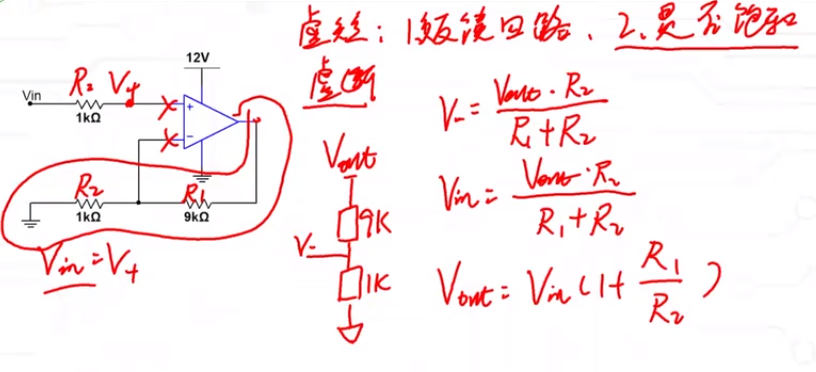 虚短：1、反馈回路、2、是否饱和
虚断
12V
Vin
R₂ V+
1kΩ
+
-
R₂
1kΩ
R₁
9kΩ
Vin = V+
Vout
9K
V-
1K
V- = Vout · R₂ / R₁ + R₂
Vin = Vout · R₂ / R₁ + R₂
Vout = Vin (1 + R₁ / R₂)